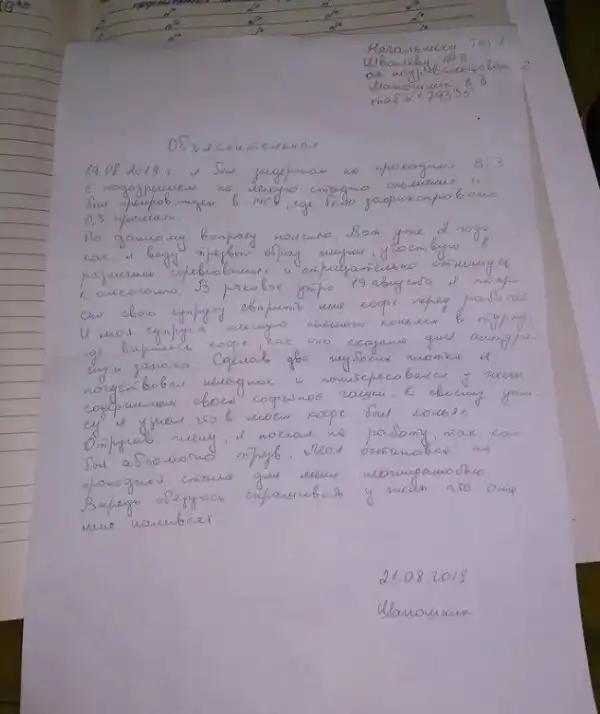 Начальнику
Швалеву
от
Иваношкин В В
таб № 79335
Объяснительная
19.08.2019 г я был задержан на проходной В/З
с подозрением на легкую стадию опьянения и
был препровожден в где было зафиксировано
0,3 промили.
По данному вопросу поясняю. Вот уже 2 года
как я веду трезвый образ жизни, участвую в
различных соревнованиях и отрицательно отношусь
к алкоголю. В раковое утро 19 августа я попро
сил свою супругу сварить мне кофе перед работой
И моя супруга плеснула немного коньяка в турку,
где варилось кофе, как она сказала для
и запаха. Сделав два глубоких глотка я
почувствовал неладное и поинтересовался у жены
содержимым своей кофейной чашки. К своему ужа
су я узнал, что в моем кофе был коньяк
Отругав жену, я поехал на работу, так как
был абсолютно трезв. Моя остановка на
проходной стала для меня неожиданностью
Впредь обязуюсь спрашивать у жены что она
мне наливает
21.08.2019
Иваношкин